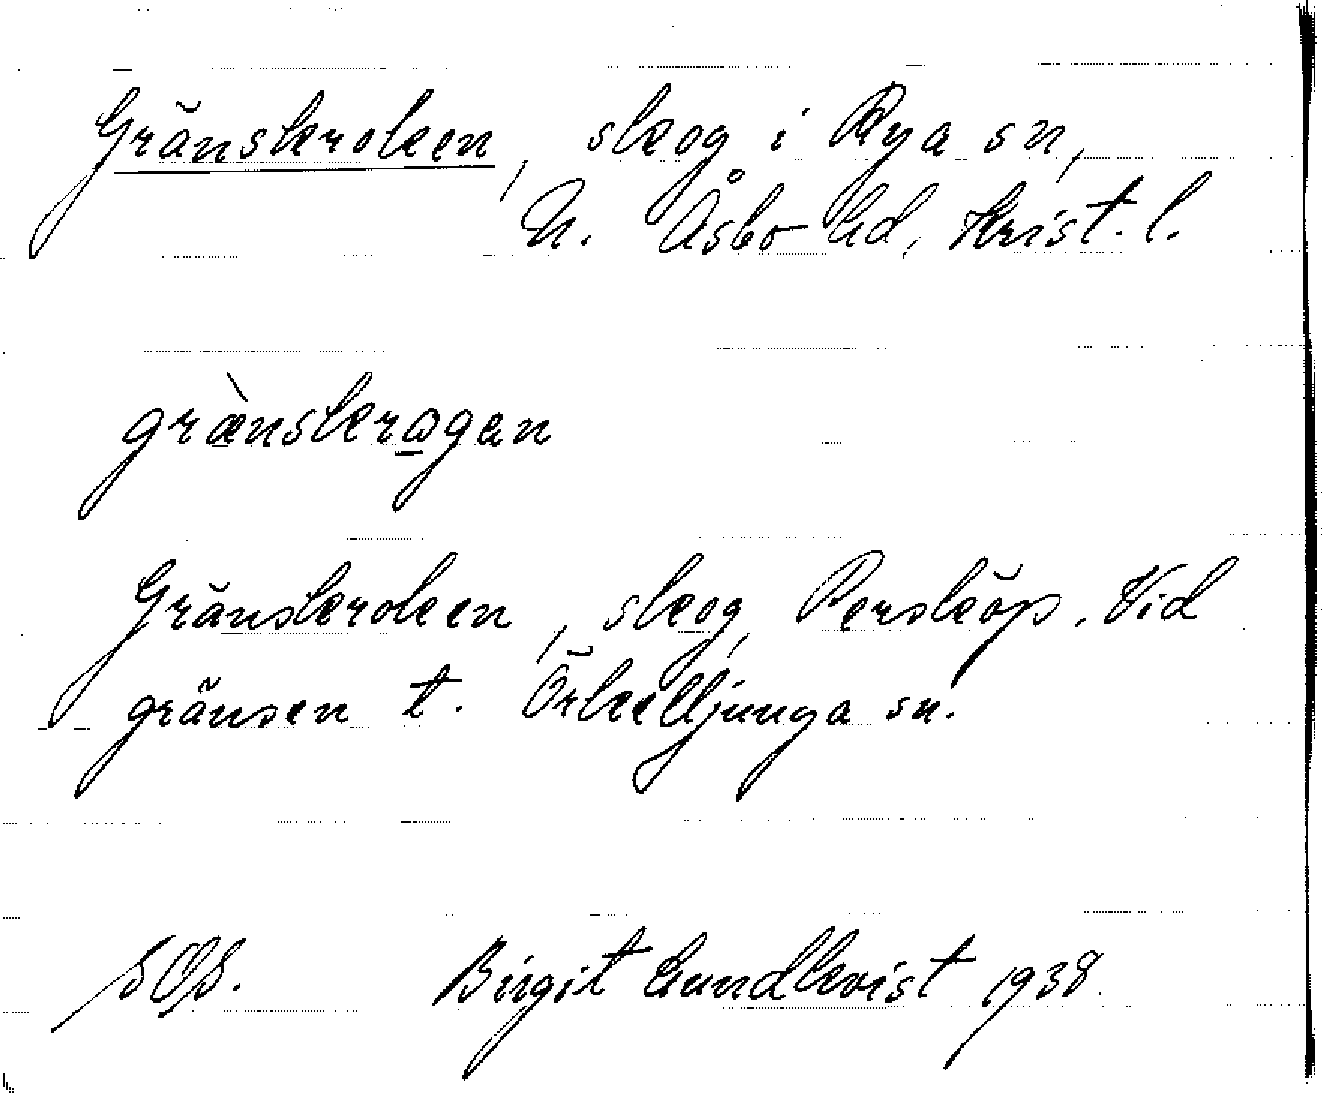 Gränskroken, skog i Rya sn,
N. Åsbo hd, Krist. l.
grä̀nskrogan
Gränskroken, skog, Persköp. Vid
gränsen t. Örkelljunga sn.
Birgit Lundkvist 1938.